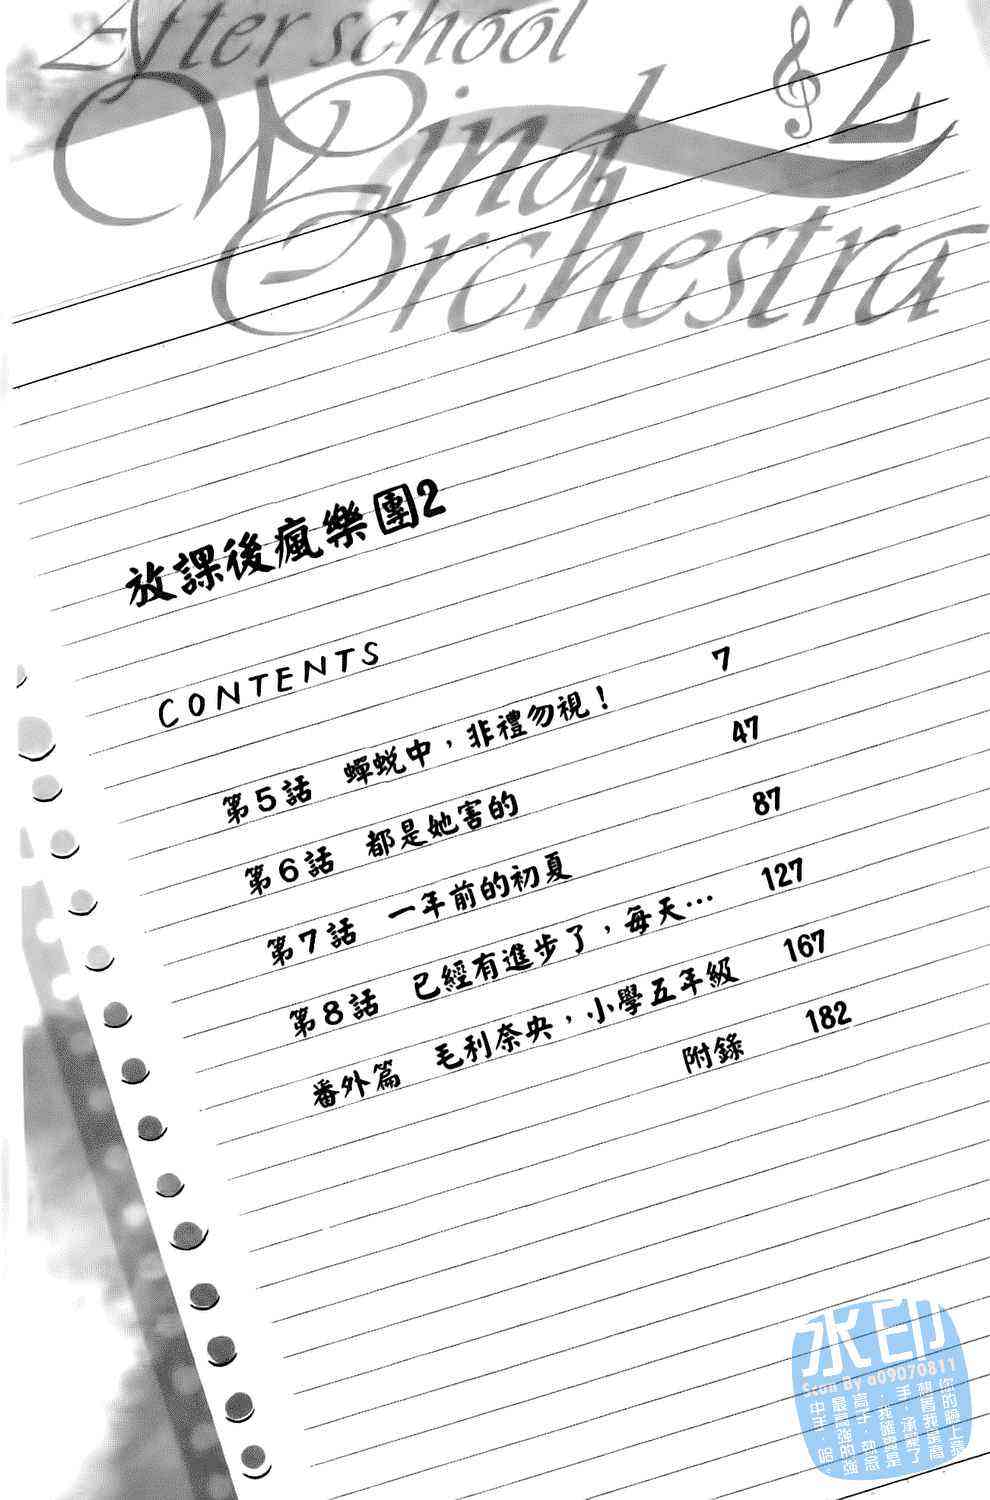 After school
Wind
Orchestra
2
放課後瘋樂團2
CONTENTS
第5話 蟬蛻中，非禮勿視！ 7
第6話 都是她害的 47
第7話 一年前的初夏 87
第8話 已經有進步了，每天… 127
番外篇 毛利奈央，小學五年級 167
附錄 182
水印
Scan By a09070811